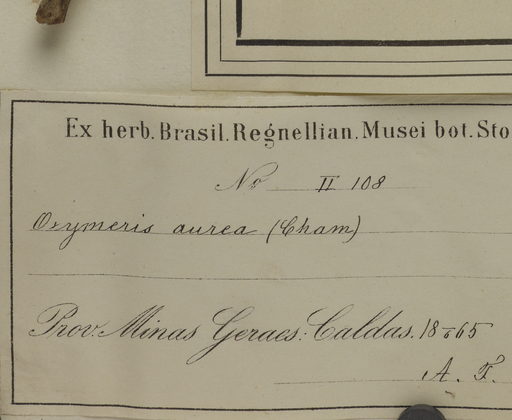 Ex herb. Brasil. Regnellian. Musei bot. Sto
No II 108
Oxymeris aurea (Cham)
Prov: Minas Geraes: Caldas. 1865
A. F.